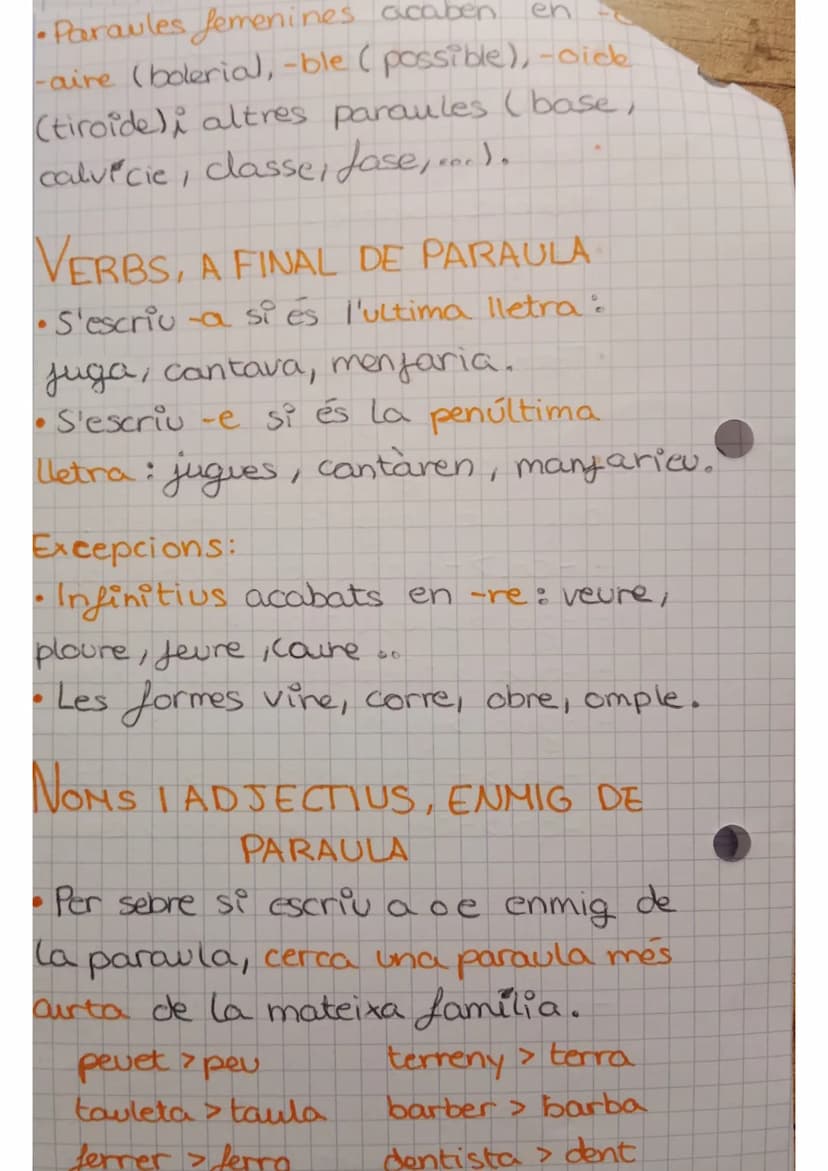 • Paraules femenines acaben en
-aire (bolerial), -ble (possible), -oide
(tiroide) i altres paraules (base,
calvície, classe, fase,...).
VERBS, A FINAL DE PARAULA
• S'escriu -a si és l'ultima lletra:
juga, cantava, menjaria.
• S'escriu -e si és la penúltima
lletra: jugues, cantàren, manjarieu.
Excepcions:
• Infinitius acabats en -re: veure,
ploure, jeure, caure ..
• Les formes vine, corre, obre, omple.
NOMS I ADJECTIUS, ENMIG DE
PARAULA
• Per sebre si escriu a o e enmig de
la paraula, cerca una paraula més
curta de la mateixa família.
peuet > peu terreny > terra
tauleta > taula barber > barba
ferrer > ferro dentista > dent